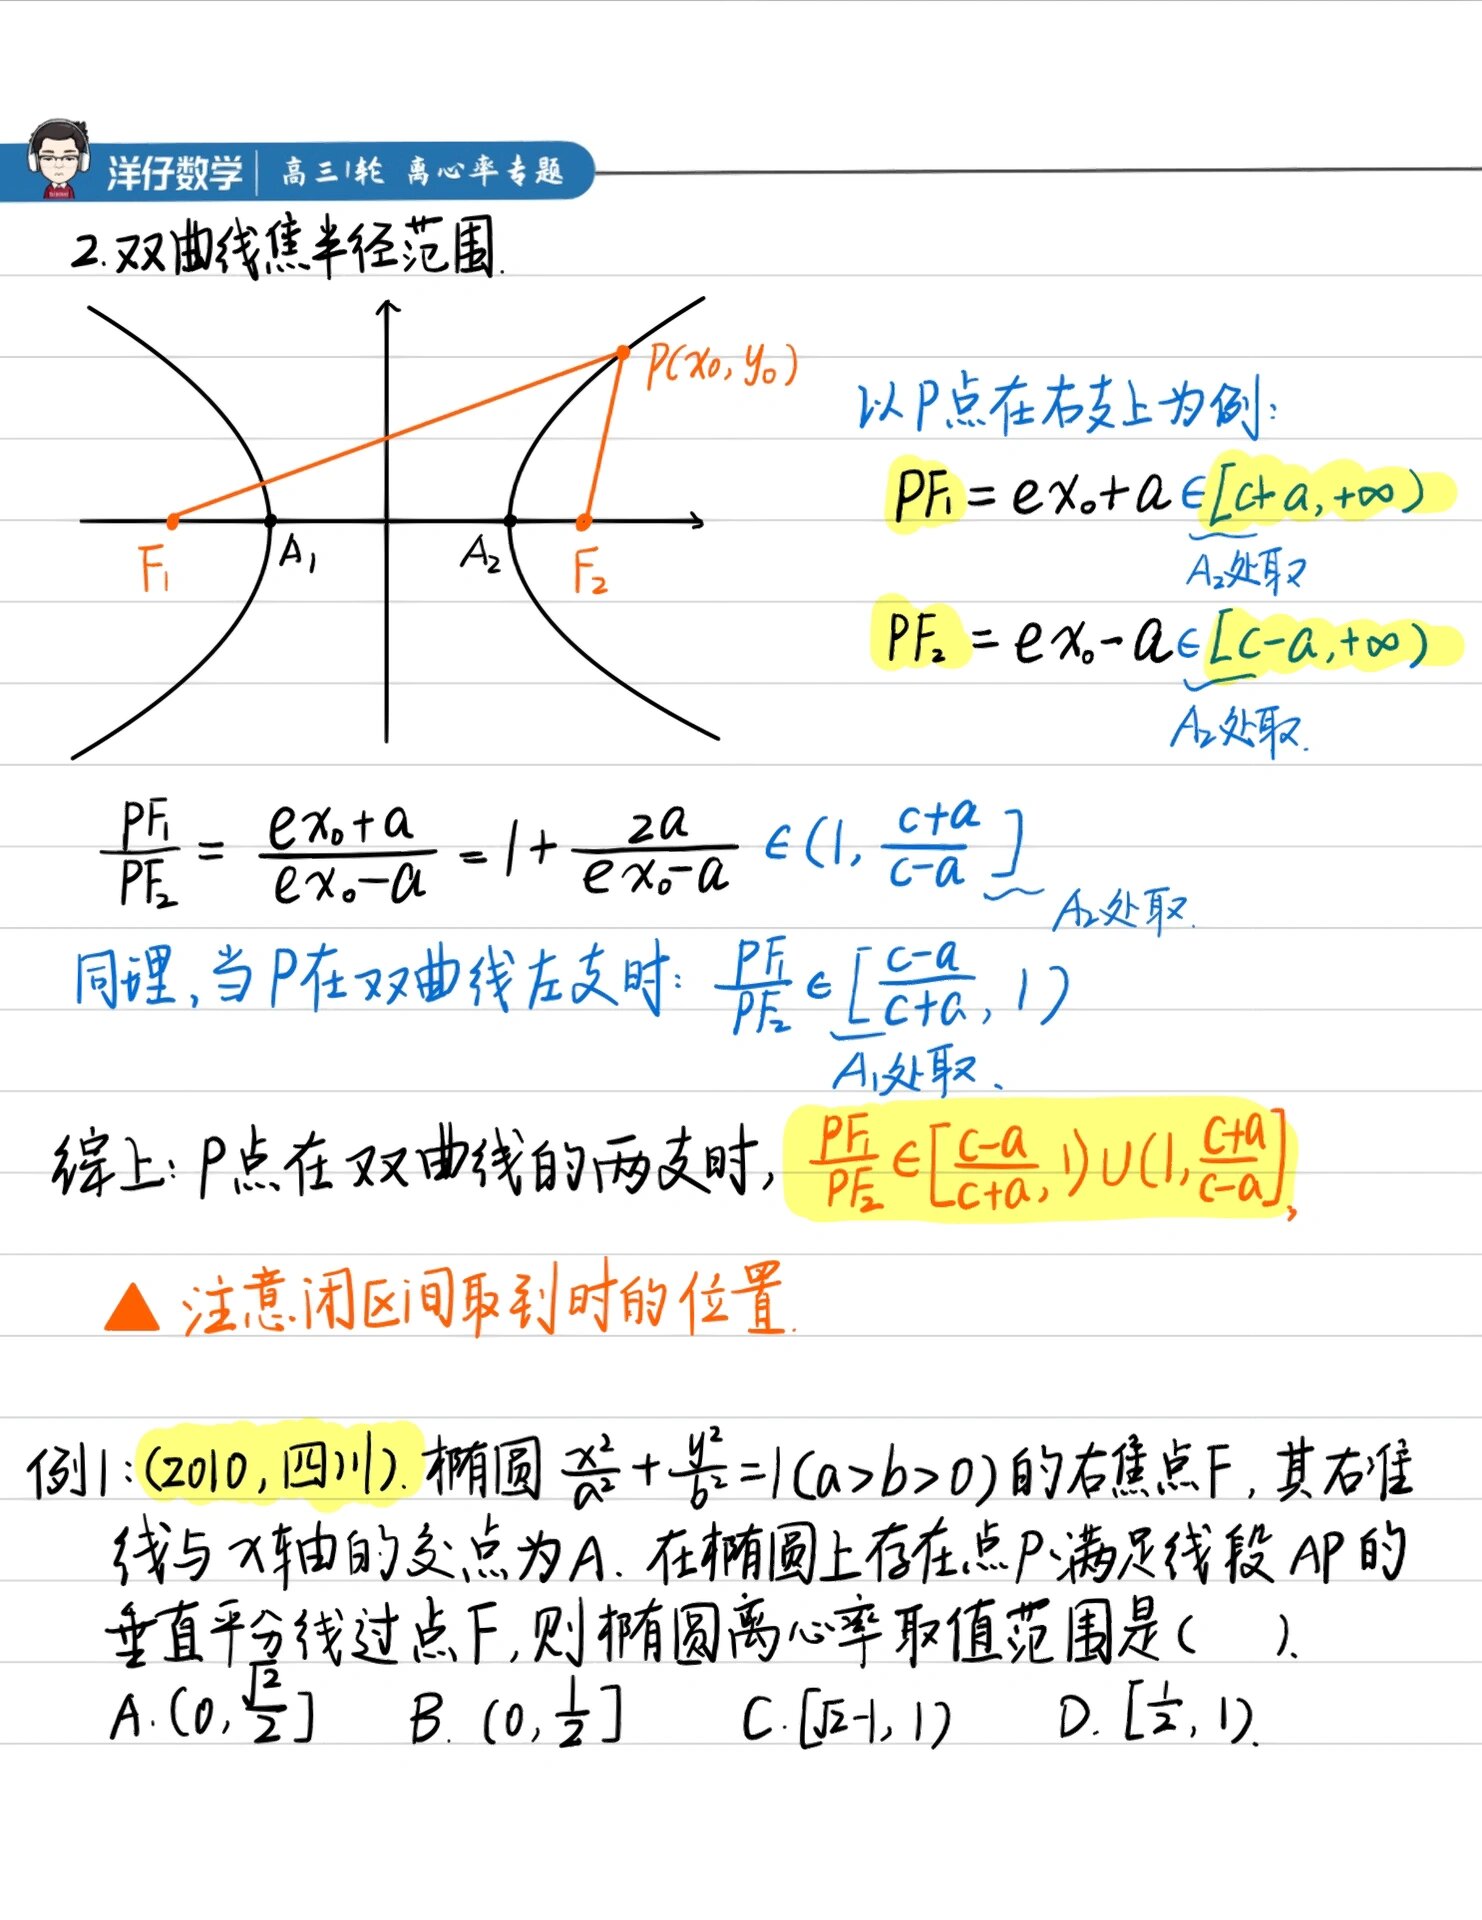 洋仔数学 | 高三1轮 离心率专题
2.双曲线焦半径范围.
P(x₀, y₀)
以P点在右支上为例:
PF₁ = ex₀+a ∈[c+a, +∞)
F₁ A₁ A₂ F₂
A₂处取
PF₂ = ex₀-a ∈[c-a, +∞)
A₂处取.
PF₁/PF₂ = (ex₀+a)/(ex₀-a) = 1 + 2a/(ex₀-a) ∈(1, (c+a)/(c-a)]
A₂处取.
同理, 当P在双曲线左支时: PF₁/PF₂ ∈ [(c-a)/(c+a), 1)
A₁处取、
综上: P点在双曲线的两支时, PF₁/PF₂ ∈[(c-a)/(c+a), 1)∪(1, (c+a)/(c-a)],
▲ 注意闭区间取到时的位置.
例1:(2010, 四川). 椭圆 x²/a² + y²/b² =1(a>b>0)的右焦点F, 其右准
线与x轴的交点为A. 在椭圆上存在点P满足线段AP的
垂直平分线过点F, 则椭圆离心率取值范围是( ).
A.(0, √2/2] B. (0, 1/2] C.[√2-1, 1) D. [1/2, 1).